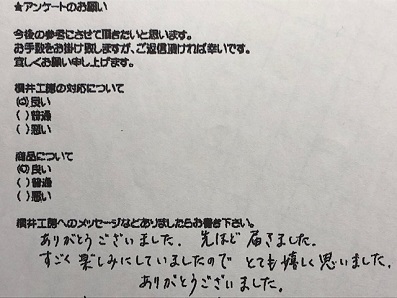 ★アンケートのお願い
今後の参考にさせて頂きたいと思います。
お手数をお掛け致しますが、ご返信頂ければ幸いです。
宜しくお願い申し上げます。
横井工房の対応について
(○)良い
( )普通
( )悪い
商品について
(○)良い
( )普通
( )悪い
横井工房へのメッセージなどありましたらお書き下さい。
ありがとうございました。先ほど届きました。
すごく楽しみにしていましたので とても嬉しく思いました。
ありがとうございました。